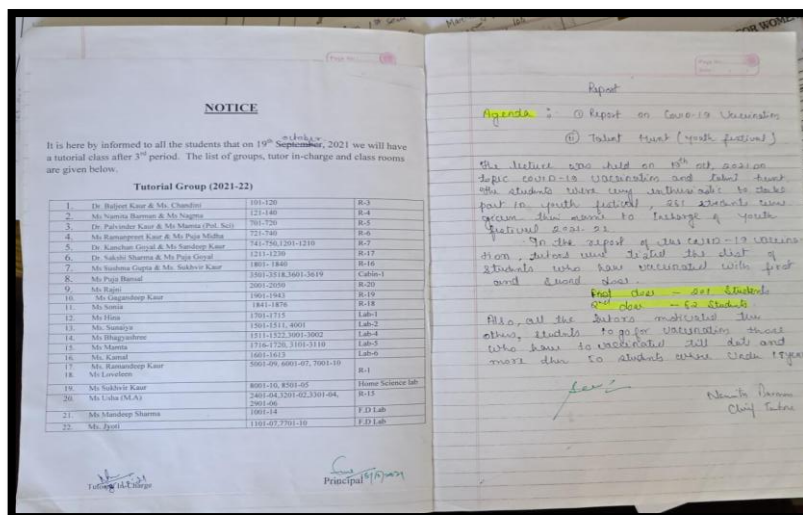 FOR WOME
NOTICE
October
It is here by informed to all the students that on 19th September, 2021 we will have
a tutorial class after 3rd period. The list of groups, tutor in-charge and class rooms
are given below.
Tutorial Group (2021-22)
1. Dr. Baljeet Kaur & Ms. Chandini 101-120 R-3
2. Ms Namita Burman & Ms Nagma 121-140 R-4
3. Dr. Palvinder Kaur & Ms Mamta (Pol. Sci) 701-720 R-5
4. Ms Ramanpreet Kaur & Ms Puja Midha 721-740 R-6
5. Dr. Kanchan Goyal & Ms Sandeep Kaur 741-750,1201-1210 R-7
6. Dr. Sakshi Sharma & Ms Puja Goyal 1211-1230 R-17
7. Ms Sushma Gupta & Ms. Sukhvir Kaur 1801- 1840 R-16
8. Ms Puja Bansal 3501-3518,3601-3619 Cabin-1
9. Ms Rajni 2001-2050 R-20
10. Ms Gagandeep Kaur 1901-1943 R-19
11. Ms Sonia 1841-1876 R-18
12. Ms Hina 1701-1715 Lab-1
13. Ms. Sunaiya 1501-1511, 4001 Lab-2
14. Ms Bhagyashree 1511-1522,3001-3002 Lab-4
15. Ms Mamta 1716-1720, 3101-3110 Lab-5
16. Ms. Kamal 1601-1613 Lab-6
17. Ms. Ramandeep Kaur 5001-09, 6001-07, 7001-10 R-1
18. Ms Loveleen
19. Ms Sukhvir Kaur 8001-10, 8501-05 Home Science lab
20. Ms Usha (M.A) 2401-04,3201-02,3301-04, R-15
2901-06
21. Ms Mandeep Sharma 1001-14 F.D Lab
22. Ms. Jyoti 1101-07,7701-10 F.D Lab
Tutor In-Charge
Principal
Report
Agenda : (i) Report on Covid-19 Vaccination
(ii) Talent Hunt (youth festival)
The lecture was held on 19th oct, 2021 on
topic COVID-19 vaccination and talent hunt.
The students were very enthusiastic to take
part in youth festival, 251 students were
their name to Incharge of youth
festival 2021-22
In the report of the COVID-19 vaccina
tion, tutors were the list of
students who have vaccinated with first
and second dose.
First dose - 201 Students
2nd dose - 52 Students
Also, all the tutors motivated the
others, students to go for vaccination those
who have to vaccinated till dat and
more then 50 students were Under 18 year
Namita Burman
Chief Tutor